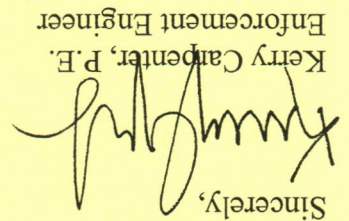 Sincerely,
Kerry Carpenter, P.E.
Enforcement Engineer